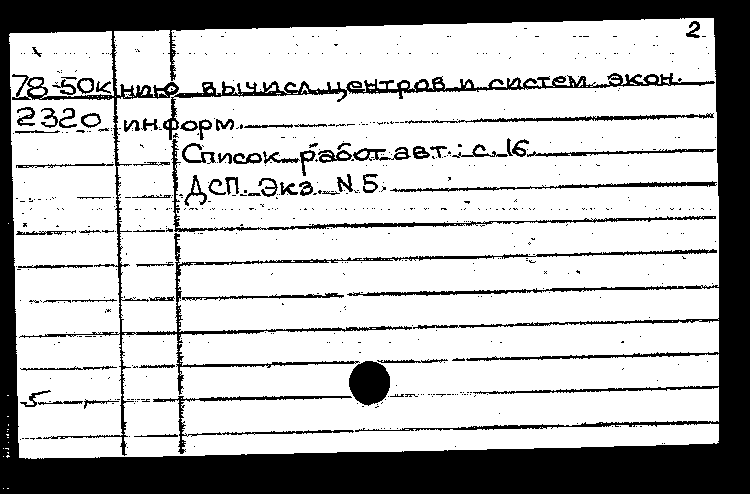 2
78-50к нию вычисл. центров и систем экон.
2320 информ.
Список работ авт.: с. 16
ДСП. Экз. N 5.
5